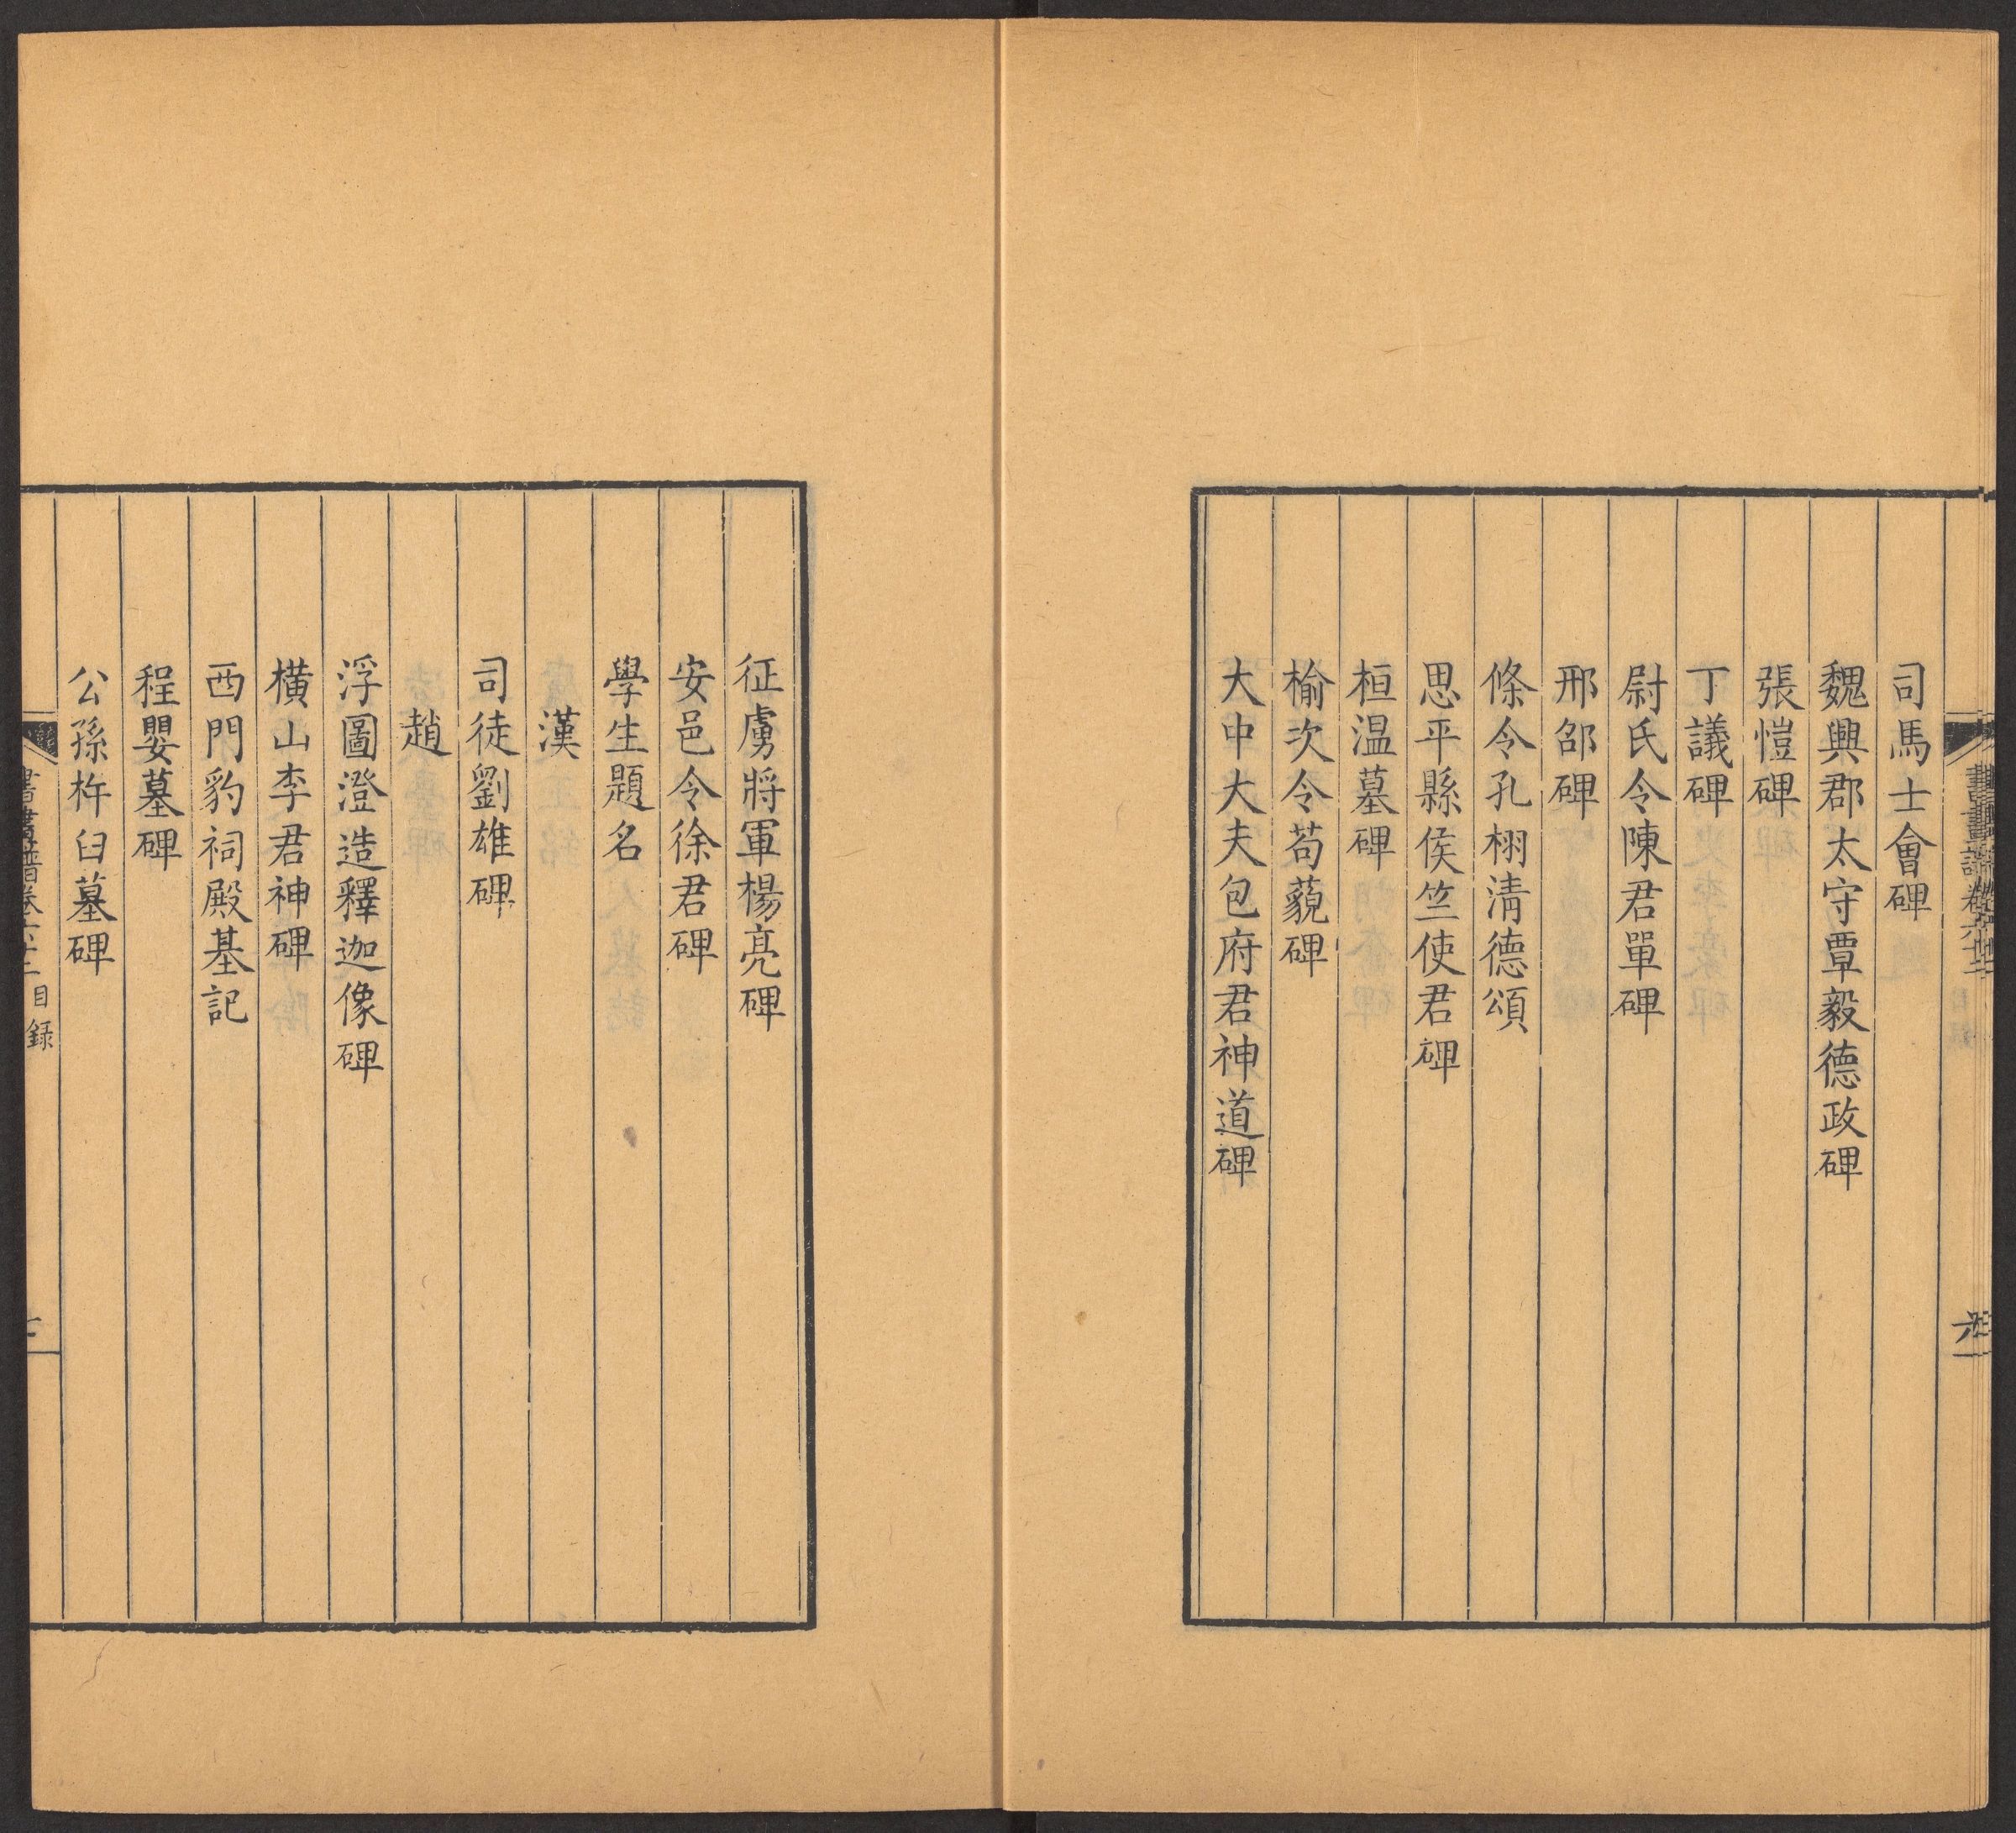 司馬士會碑
魏興郡太守覃毅德政碑
張愷碑
丁議碑
尉氏令陳君單碑
邢邵碑
條令孔栩清德頌
思平縣侯竺使君碑
桓温墓碑
榆次令荀藐碑
大中大夫包府君神道碑
征虜將軍楊亮碑
安邑令徐君碑
學生題名
漢
司徒劉雄碑
趙
浮圖澄造釋迦像碑
橫山李君神碑
西門豹祠殿基記
程嬰墓碑
公孫杵臼墓碑
書畫譜卷六十二 目録